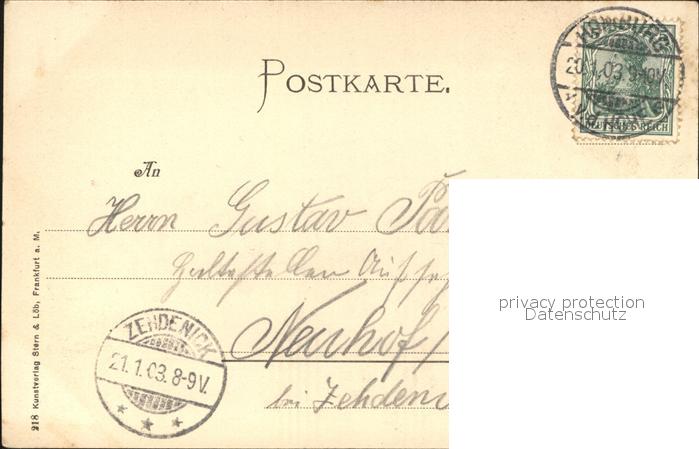 POSTKARTE.
HOMBURG
20.1.03. 9-10V.
DEUTSCHES REICH
An
Herrn Gustav
Haltestellen
Neuhof
bei Zehden
ZEHDENICK
21.1.03.8-9V.
privacy protection
Datenschutz
218 Kunstverlag Stern & Löb, Frankfurt a. M.